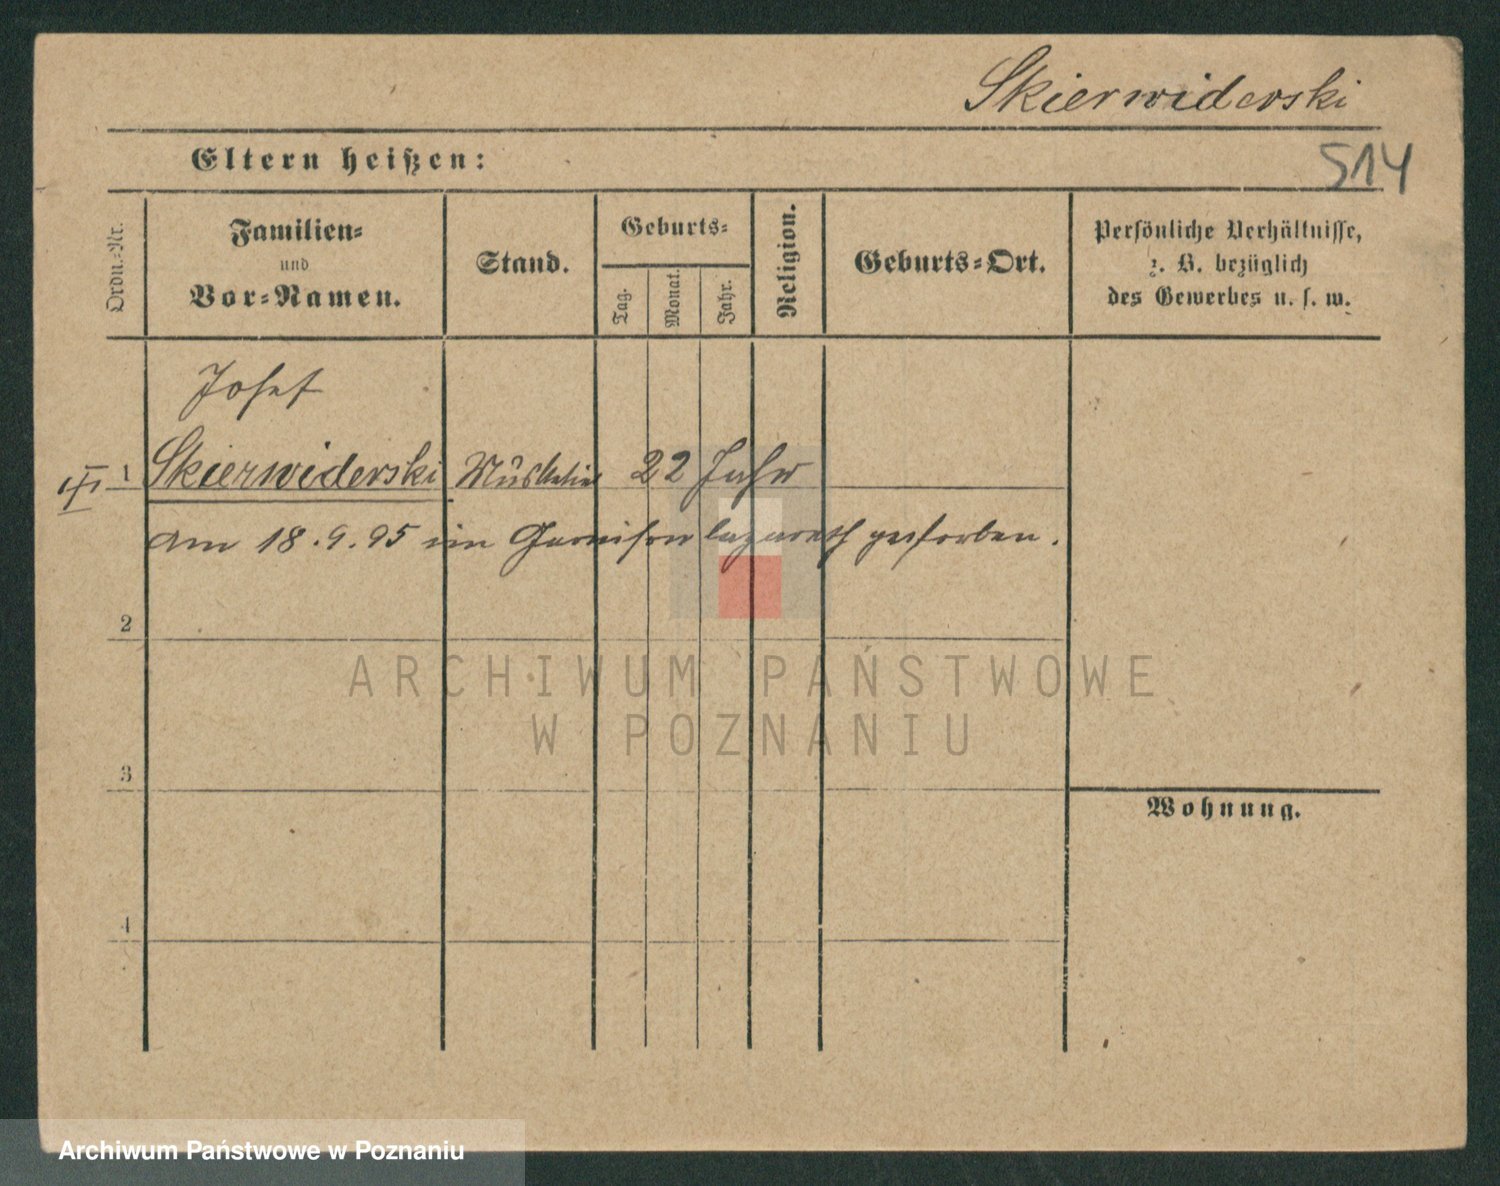 Skierwiderski
Eltern heißen:
514
Ordn.-Nr.
Familien-
und
Vor-Namen.
Stand.
Geburts-
Tag.
Monat.
Jahr.
Religion.
Geburts-Ort.
Persönliche Verhältnisse,
z. B. bezüglich
des Gewerbes u. s. w.
Josef
1 Skierwiderski Musketier 22 Jahr
am 18.9.95 im Garnisonlazareth gestorben.
2
ARCHIWUM PAŃSTWOWE
W POZNANIU
3
Wohnung.
4
Archiwum Państwowe w Poznaniu